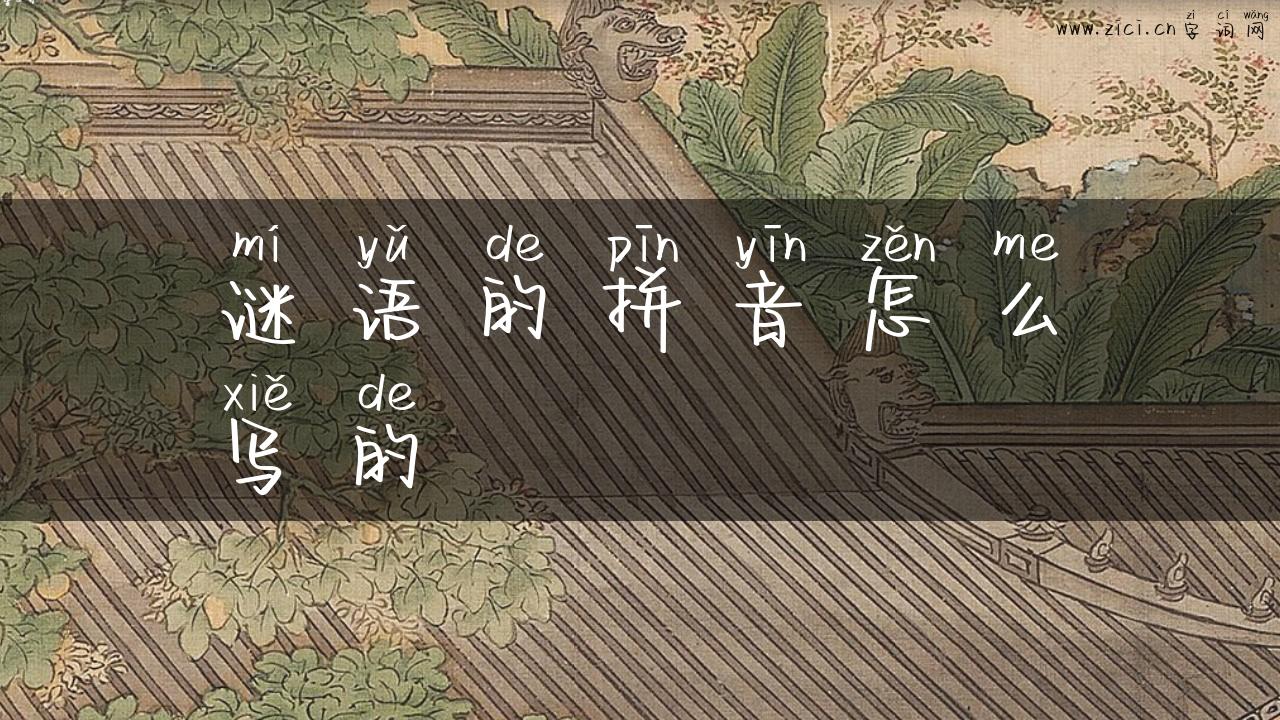 zì cí wǎng
www.zici.cn 字词网
mí yǔ de pīn yīn zěn me
谜语的拼音怎么
xiě de
写的